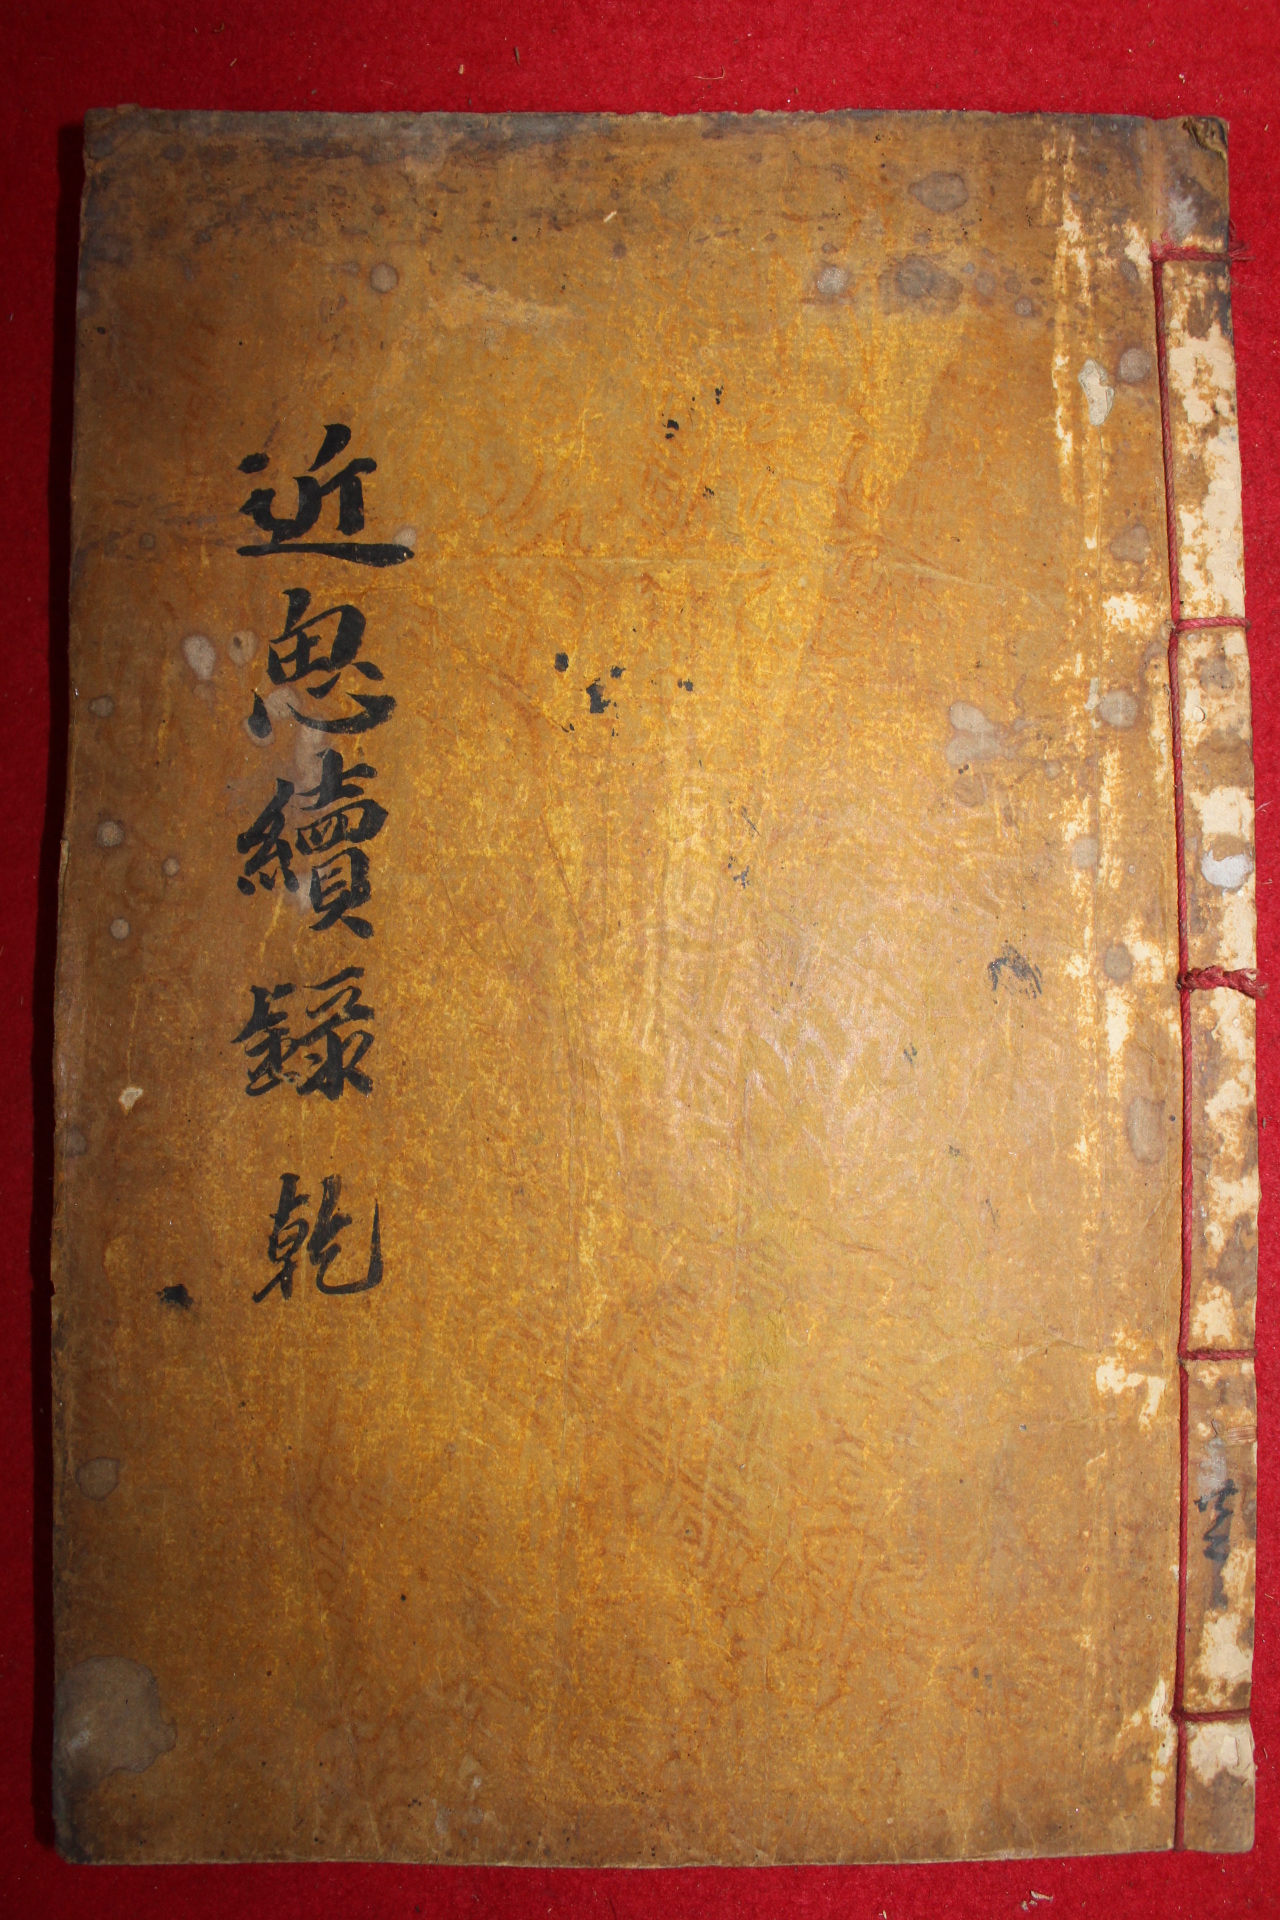 近思續錄 乾